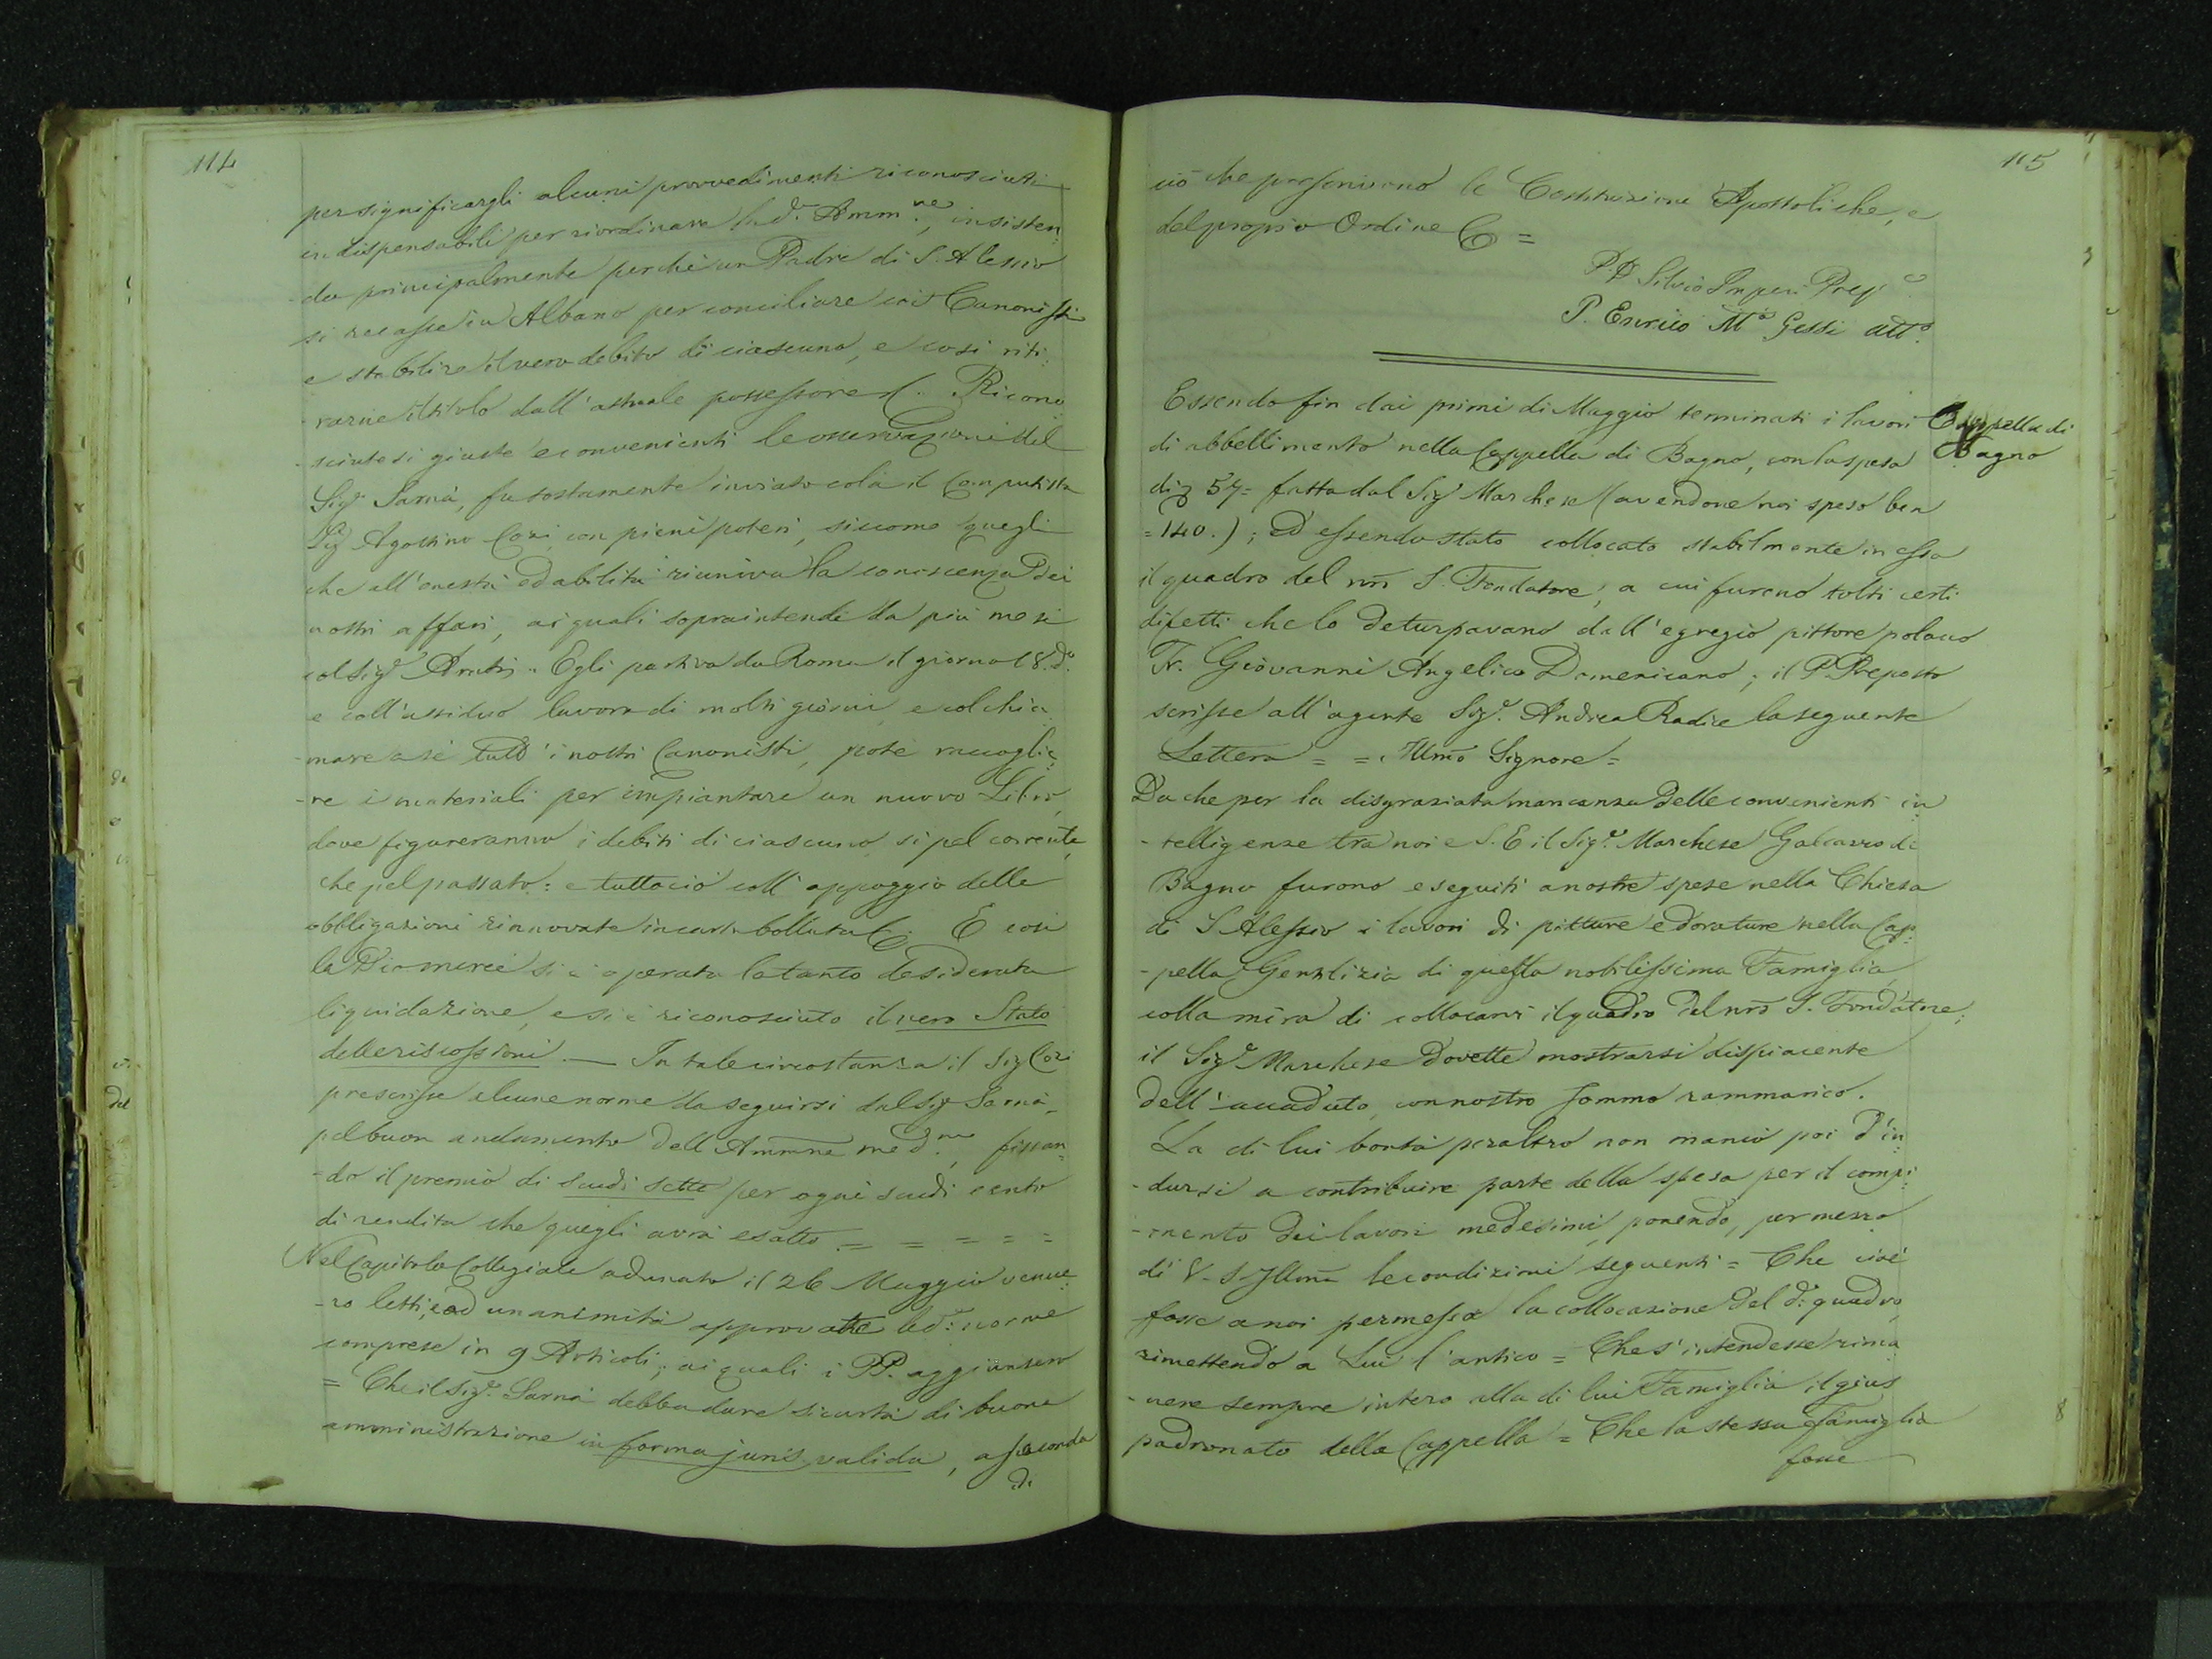 114
per significargli alcuni provvedimenti riconosciuti
indispensabili per riordinare la d.ª Amm.ne, insisten:
do principalmente perchè un Padre di S. Alessio
si recasse in Albano per conciliare coi Canonisti
e stabilire il vero debito di ciascuno, e così riti:
rarne il titolo dall'attuale possessore &. Ricono
sciutesi giuste e convenienti le osservazioni del
Sig.r Sarnà, fu tostamente inviato colà il Computista
Sig.r Agostino Cori con pieni poteri, siccome quegli
che all'onestà ed abilità riuniva la conoscenza dei
nostri affari, ai quali sopraintende da più mesi
col Sig.r Arutri. Egli partiva da Roma il giorno 18. d.º
e coll'assiduo lavoro di molti giorni, e col chia
mare a sè tutti i nostri Canonisti, potè raccoglie:
re i materiali per impiantare un nuovo Libro,
dove figureranno i debiti di ciascuno sì pel corrente,
che pel passato: e tuttociò coll'appoggio delle
obbligazioni rinnovate in carta bollata &. E così
la Dio mercè si è operata la tanto desiderata
liquidazione, e si è riconosciuto il vero Stato
delle riscossioni. — In tale circostanza il Sig Cori
prescrisse alcune norme da seguirsi dal Sig.r Sarnà,
pel buon andamento dell'Ammne med.ma, fissan=
-do il premio di scudi sette per ogni scudi cento
di rendita che quegli avrà esatto. = = = = =
Nel Capitolo Collegiale adunato il 26 Maggio venne:
-ro letti, e ad unanimità approvate le d.e norme
comprese in 9 Articoli; ai quali i PP. aggiunsero
= Che il Sig.r Sarnà debba dare sicurtà di buona
amministrazione in forma juris valida, a seconda
di
115
ciò che prescrivono le Costituzioni Apostoliche, e
del proprio Ordine & =
P. D. Silvio Imperi Prep.o
P. Enrico M.a Gessi att.o
Essendo fin dai primi di Maggio terminati i lavori
Cappella di
Bagno
di abbellimento nella Cappella di Bagno, con la spesa
di 57= fatta dal Sig.r Marchese (avendone noi speso ben
=140.); ed essendo stato collocato stabilmente in essa
il quadro del nrõ S. Fondatore, a cui furono tolti certi
difetti che lo deturpavano dall'egregio pittore polacco
Fr. Giovanni Angelico Domenicano; il P. Preposto
scrisse all'agente Sig.r Andrea Radice la seguente
Lettera = = Illmõ Signore=
Da che per la disgraziata mancanza delle convenienti in
-telligenze tra noi e S. E il Sig.r Marchese Galeazzo di
Bagno furono eseguiti a nostre spese nella Chiesa
di S Alessio i lavori di pitture e dorature nella Cap:
-pella Gentilizia di questa nobilissima Famiglia,
colla mira di collocarvi il quadro del nrõ S. Fondatore;
il Sig.r Marchese dovette mostrarsi dispiacente
dell'accaduto, con nostro sommo rammarico.
La di lui bontà peraltro non mancò poi d'in:
-dursi a contribuire parte della spesa per il compi:
-mento dei lavori medesimi, ponendo, per mezzo
di V. S Illmã le condizioni seguenti = Che cioè
fosse a noi permessa la collocazione del d.º quadro,
rimettendo a Lui l'antico = Che s'intendesse rima
-nere sempre intero alla di lui Famiglia il gius
padronato della Cappella = Che la stessa Famiglia
fosse